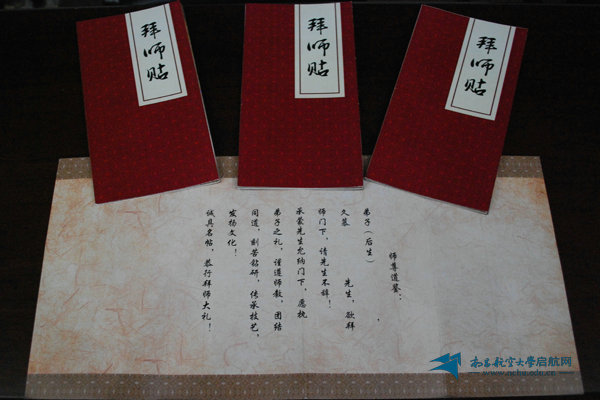 拜师贴
拜师贴
拜师贴
师尊道鉴：
弟子（后生）　　　，
久慕　　　先生，欲拜
师门下，请先生不辞！
承蒙先生允纳门下，愿执
弟子之礼，谨遵师教，团结
同道，刻苦钻研，传承技艺，
发扬文化！
诚具名帖，恭行拜师大礼！
南昌航空大学启航网
www.nchu.edu.cn